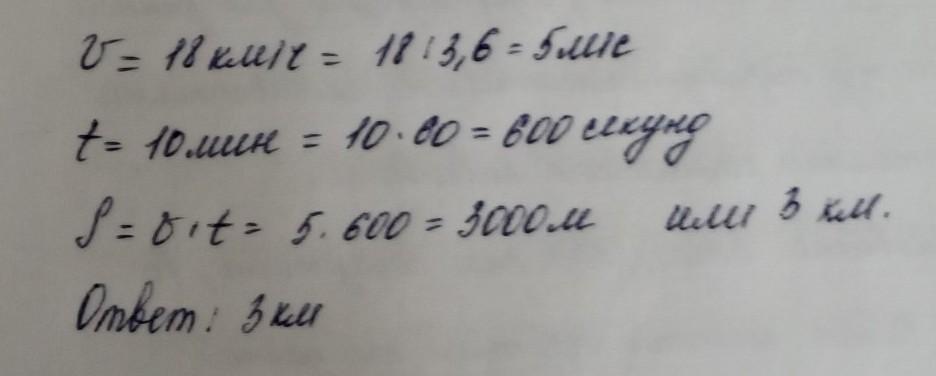 v = 18 км/ч = 18 : 3,6 = 5 м/с
t = 10 мин = 10 · 60 = 600 секунд
S = v · t = 5 · 600 = 3000 м или 3 км.
Ответ: 3 км